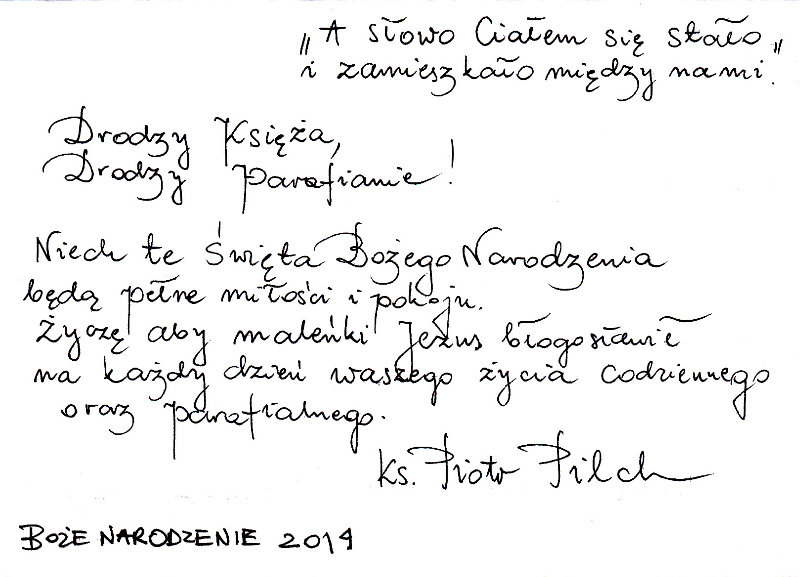 „A słowo Ciałem się stało
i zamieszkało między nami”.
Drodzy Księża,
Drodzy parafianie!
Niech te Święta Bożego Narodzenia
będą pełne miłości i pokoju.
Życzę aby maleńki Jezus błogosławił
na każdy dzień waszego życia codziennego
oraz parafialnego.
ks. Piotr Pilch
BOŻE NARODZENIE 2014